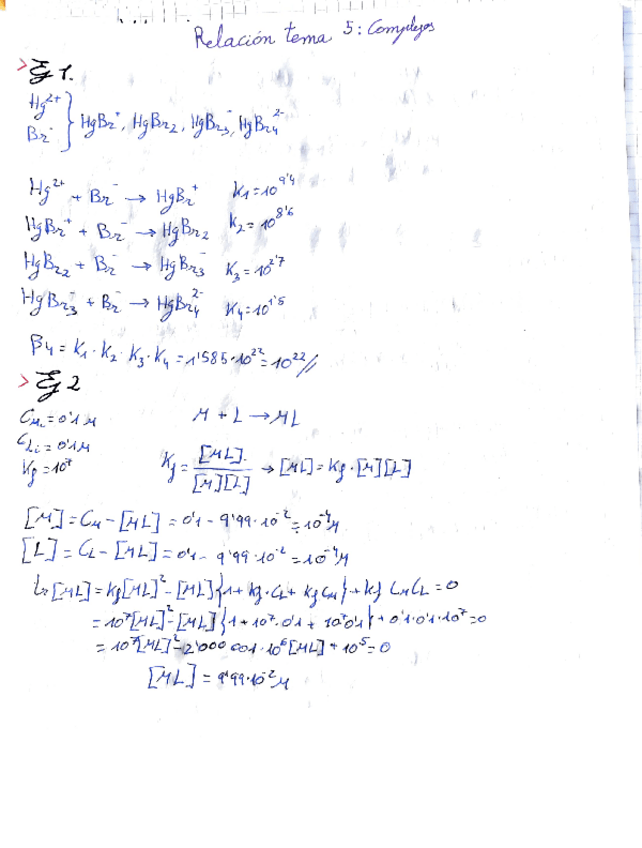 Relación tema 5: Complejos
> Ej 1.
Hg²⁺
Br⁻ } HgBr⁺, HgBr₂, HgBr₃⁻, HgBr₄²⁻
Hg²⁺ + Br⁻ → HgBr⁺ K₁ = 10^9'4
HgBr⁺ + Br⁻ → HgBr₂ K₂ = 10^8'6
HgBr₂ + Br⁻ → HgBr₃⁻ K₃ = 10^2'7
HgBr₃⁻ + Br⁻ → HgBr₄²⁻ K₄ = 10^1'5
β₄ = K₁ · K₂ · K₃ · K₄ = 1'585 · 10²² = 10²² //
> Ej 2
C_Mi = 0'1 M M + L → ML
C_Li = 0'1 M
Kf = 10⁷ Kf = [ML] / [M][L] → [ML] = Kf · [M][L]
[M] = C_M - [ML] = 0'1 - 9'99 · 10⁻² = 10⁻⁴ M
[L] = C_L - [ML] = 0'1 - 9'99 · 10⁻² = 10⁻⁴ M
↳ [ML] = Kf [ML]² - [ML] {1 + Kf · C_L + Kf C_M} + Kf C_M C_L = 0
= 10⁷ [ML]² - [ML] {1 + 10⁷ · 0'1 + 10⁷ 0'1} + 0'1 · 0'1 · 10⁷ = 0
= 10⁷ [ML]² - 2'000001 · 10⁶ [ML] + 10⁵ = 0
[ML] = 9'99 · 10⁻² M